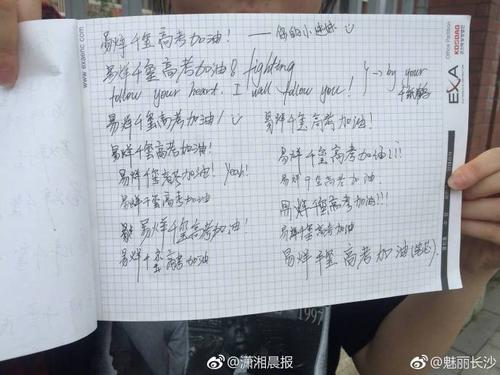 易烊千玺高考加油! —— 你的小迷妹
易烊千玺高考加油! fighting
follow your heart. I will follow you! → by your 千纸鹤
易烊千玺高考加油!
易烊千玺高考加油!
易烊千玺高考加油! Yeah!
易烊千玺高考加油
易烊千玺高考加油!
易烊千玺高考加油
易烊千玺高考加油!
易烊千玺高考加油!!!
易烊千玺高考加油
易烊千玺高考加油!!!
易烊千玺高考加油
易烊千玺高考加油(笔芯).
www.exaeinc.com
EXA
Office Partition
KOSDAQ
1997
@潇湘晨报
@魅丽长沙